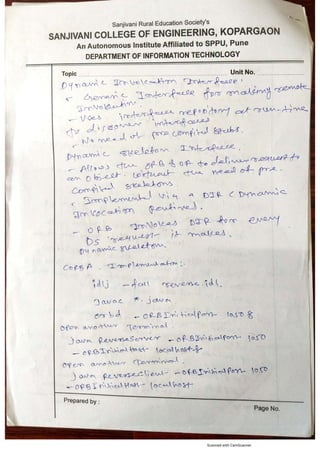 Sanjivani Rural Education Society's
SANJIVANI COLLEGE OF ENGINEERING, KOPARGAON
An Autonomous Institute Affiliated to SPPU, Pune
DEPARTMENT OF INFORMATION TECHNOLOGY
Topic Unit No.
Dynamic Invocation Interface:
- Generic Interface for making remote
Invocation.
- Uses interface repository at run-time
to discover interfaces
- No need of pre compiled stubs.
Dynamic Skeleton Interface.
- Allows the ORB & OA to deliver request to
an Object without the need of pre.
Compiled skeletons.
- Implemented via a DIR (Dynamic
Invocation Routine).
- ORB Invokes DIR for every
DS request it makes.
Dynamic skeleton.
CORBA Implementation:
idlj -fall reverse.idl.
Javac *.java
orbd -ORBInitialPort 1050 &
Open another Terminal.
Java ReverseServer -ORBInitialPort 1050
-ORBInitialHost localhost &
Open another Terminal.
Java ReverseClient -ORBInitialPort 1050
-ORBInitialHost localhost
Prepared by :
Page No.
Scanned with CamScanner